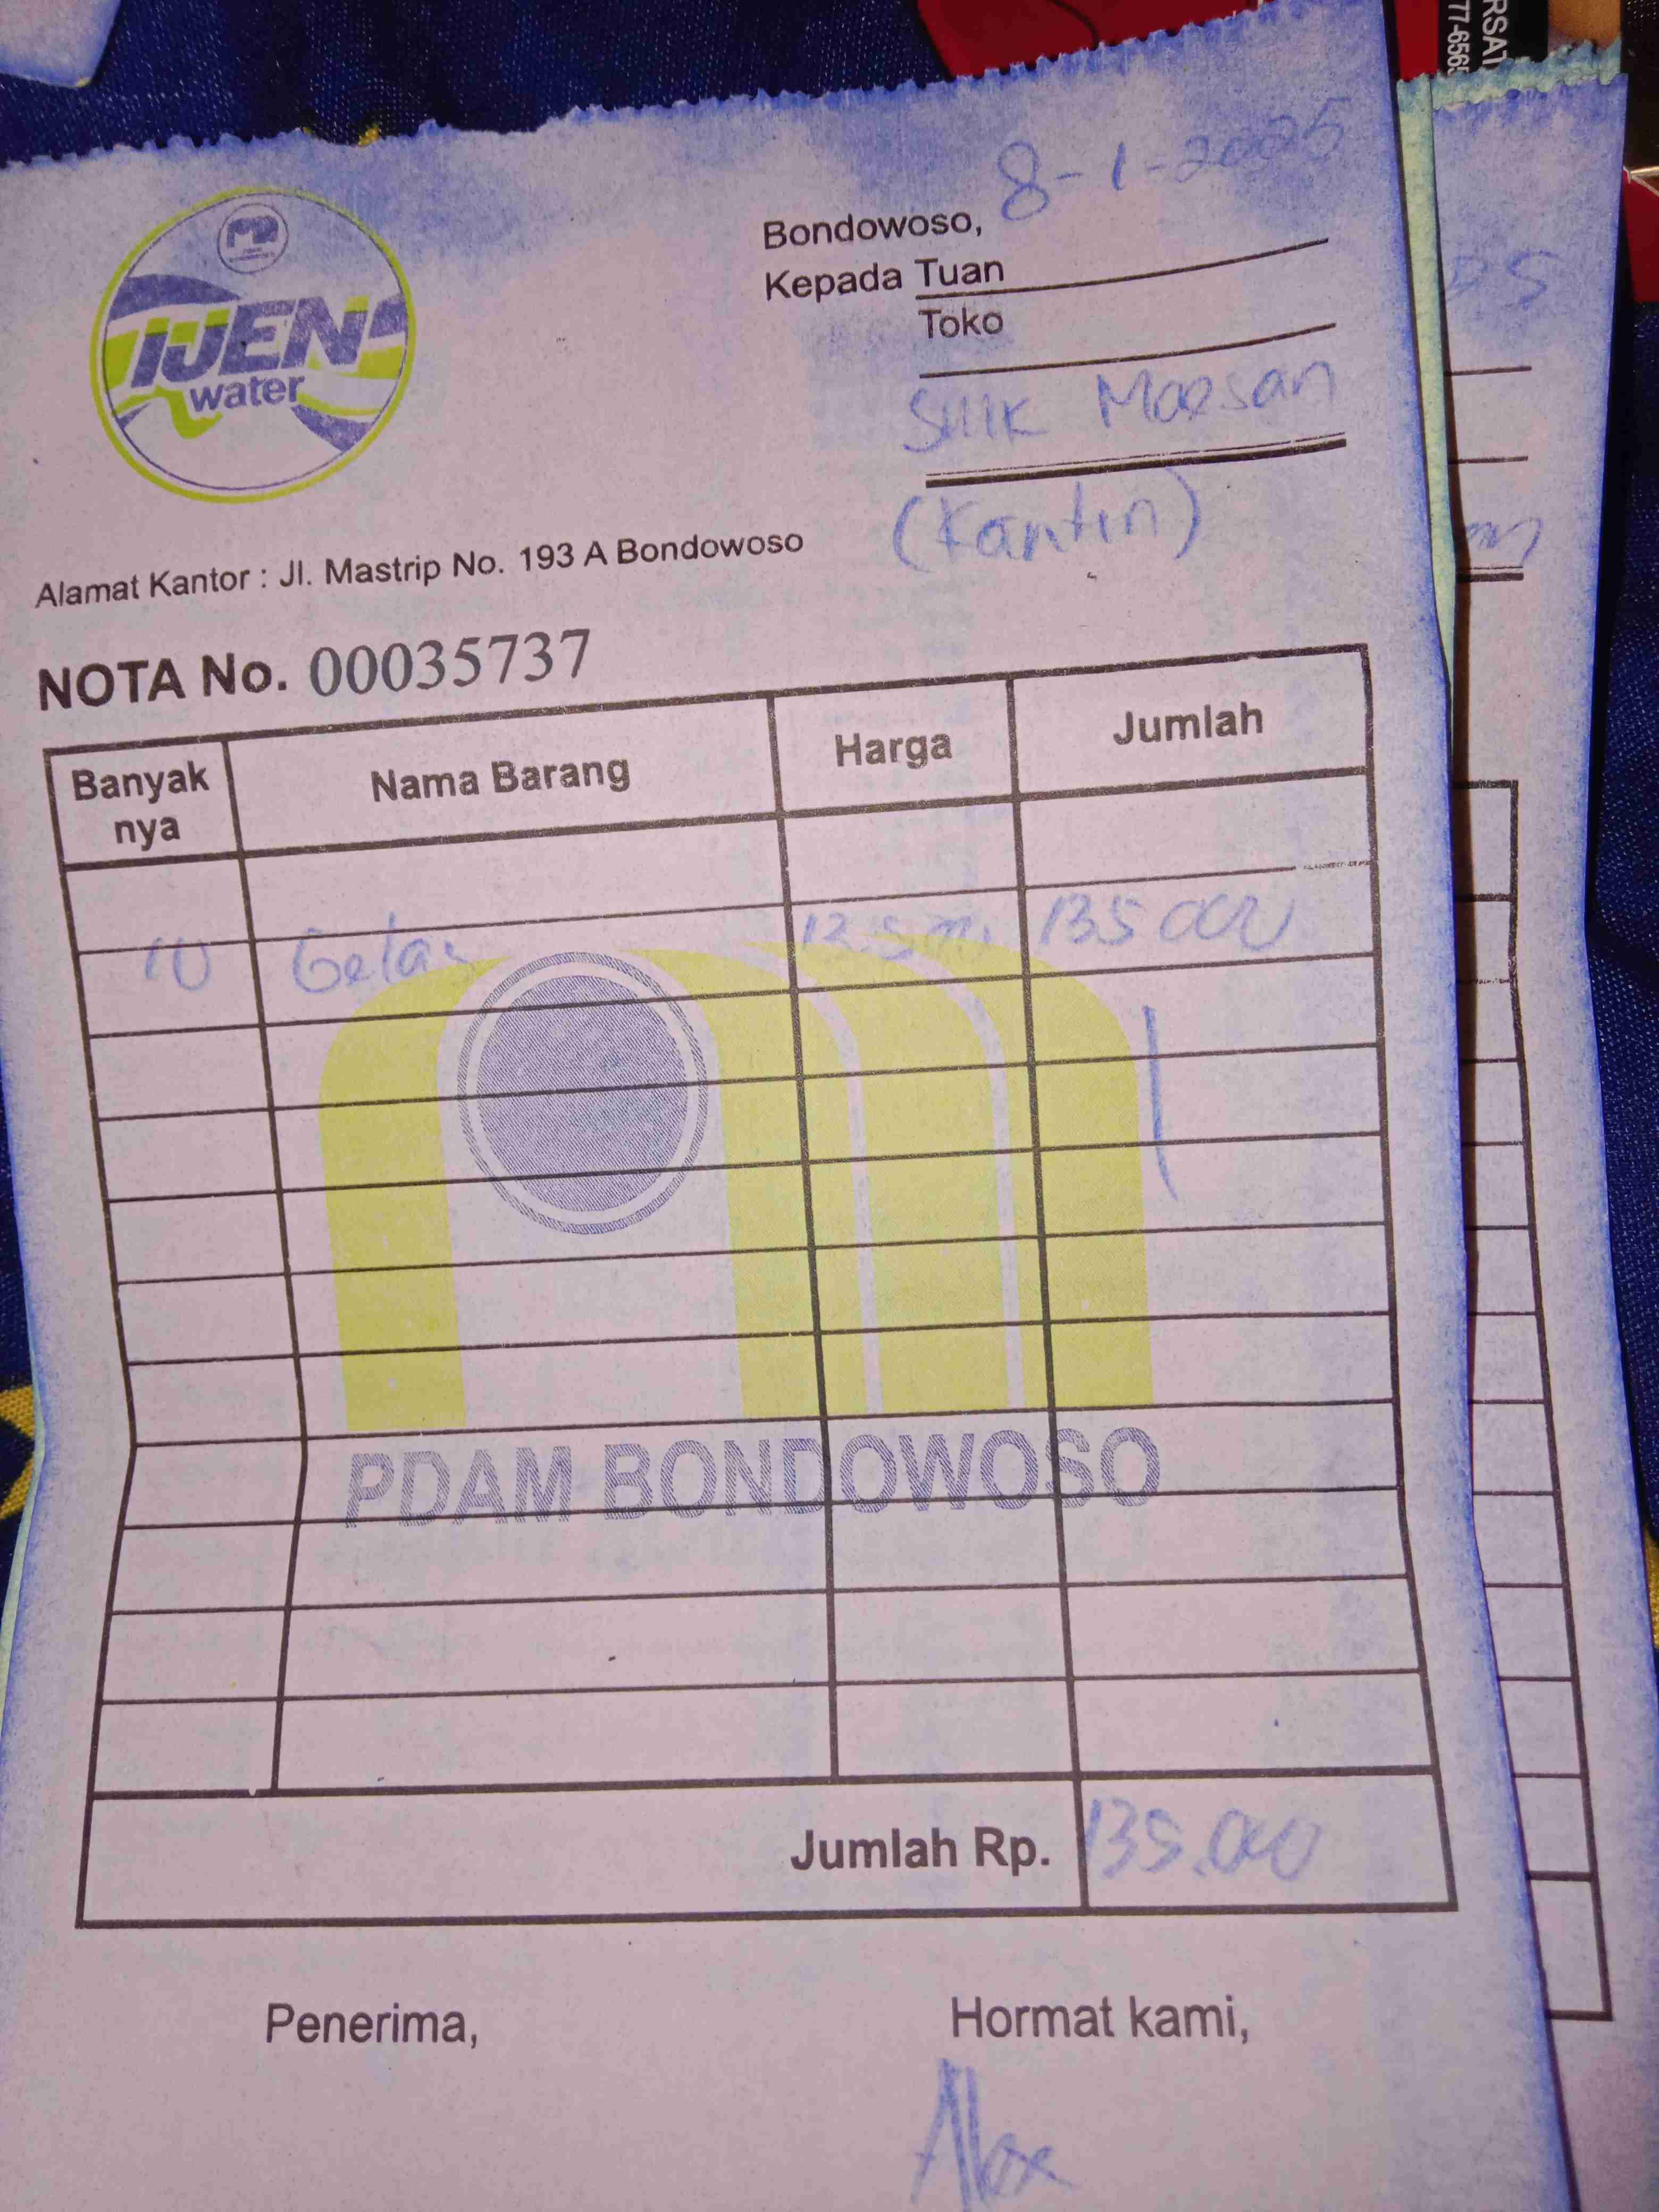 RSAT
77-656
IJEN
water
Bondowoso, 8-1-2025
Kepada Tuan
Toko
SMK Maesan
(Kantin)
Alamat Kantor : Jl. Mastrip No. 193 A Bondowoso
NOTA No. 00035737
Banyak nya Nama Barang Harga Jumlah
10 Gelas 135.000
PDAM BONDOWOSO
Jumlah Rp. 135.000
Penerima, Hormat kami,